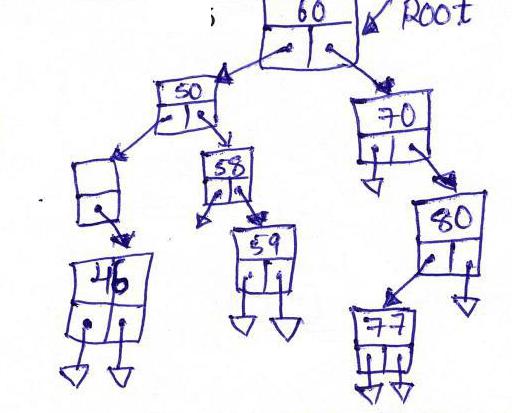 60
Root
50
70
58
80
59
46
77